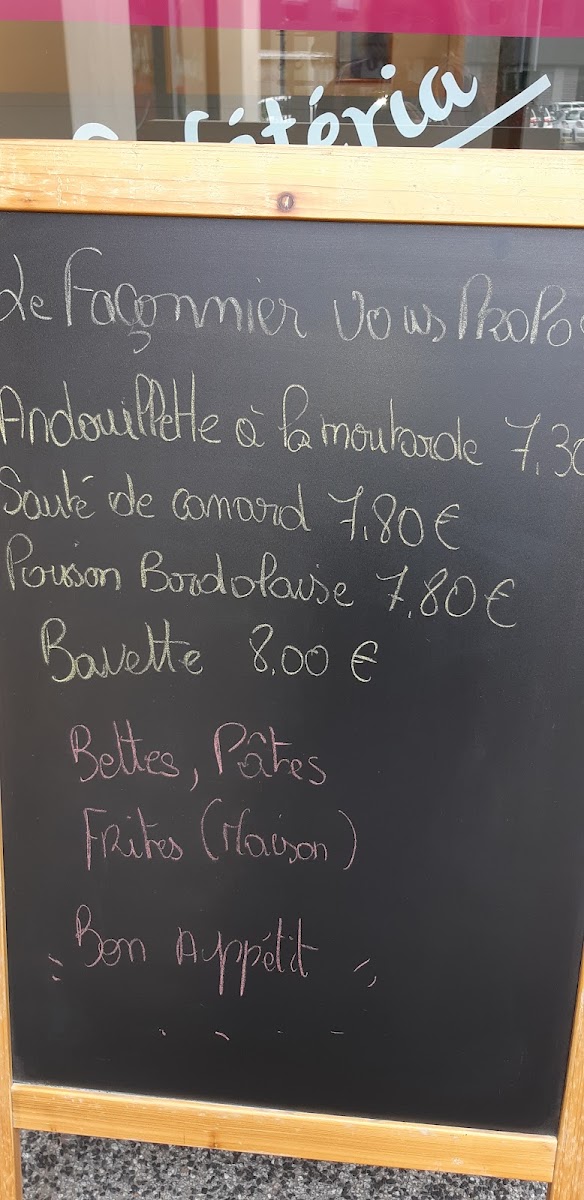 Cafétéria
Le Façonnier vous Propo
Andouillette à la moutarde 7,30
Sauté de canard 7,80 €
Poisson Bordelaise 7,80 €
Bavette 8,00 €
Bettes, Pâtes
Frites (Maison)
Bon Appétit